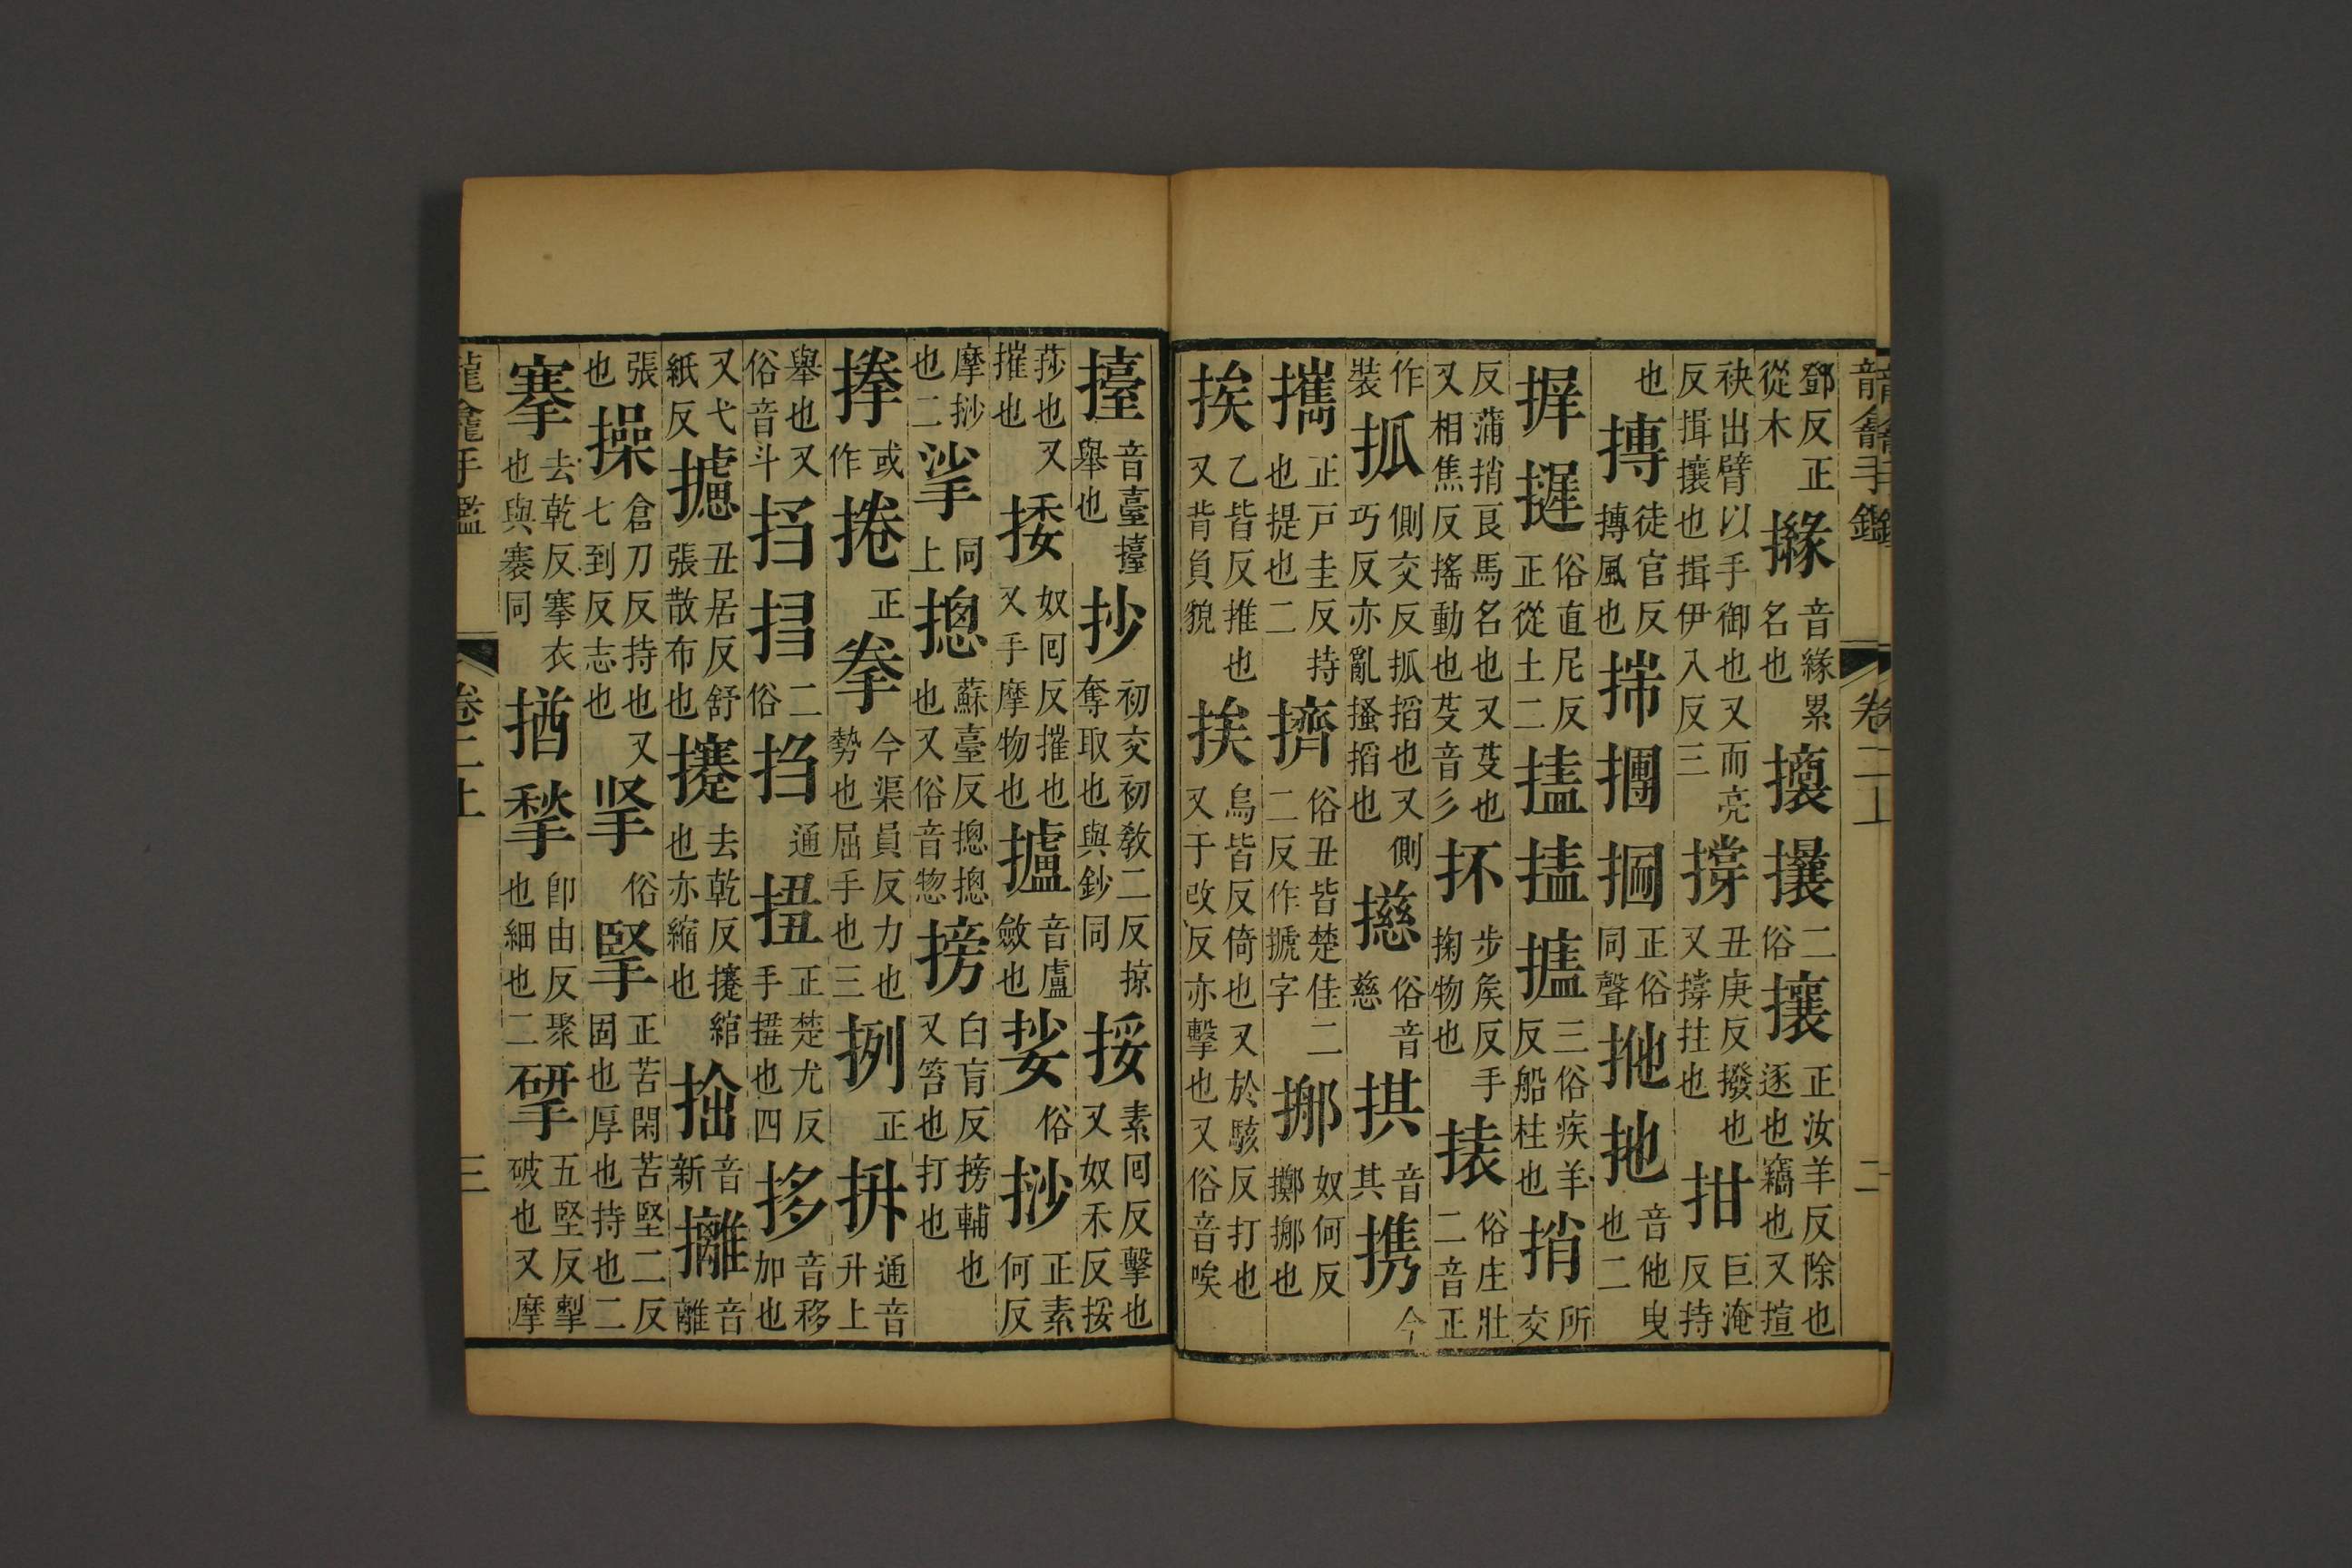 龍龕手鑑 卷二上 二
鄧反正從木 㨩 音緣累名也 攘 二俗 攘 正汝羊反除也逐也竊也又揎
袂出臂以手御也又而亮反揖攘也揖伊入反三 撑 丑庚反撥也又撐拄也 拑 巨淹反持
也 摶 徒官反摶風也 揣 團 正俗同聲 拖 扡 音他曳也二
摨 俗直尼反正從土二 三俗疾羊反船柱也 捎 所交
反蒲捎良馬名也又芟也又相焦反搖動也芟音彡 抔 步矦反手掬物也 裝 俗庄壯二音正
作裝 抓 側交反抓搯也又側巧反亦亂搔搯也 㩞 俗音慈 㧡 音其 携 今
攜 正戶圭反持也提也二 擠 俗丑皆楚佳二二反作搋字 挪 奴何反擲挪也
挨 乙皆反推也又背負貌 挨 烏皆反倚也又於駭反打也又于改反亦擊也又俗音唉
擡 音臺擡舉也 抄 初交初教二反掠奪取也與鈔同 挼 素囘反擊也又奴禾反挼
莎也又摧也 捼 奴囘反摧也又手摩物也 攎 音盧斂也 挲 俗 挱 正素何反
摩挱也二 挲 同上 摠 蘇臺反摠摠也又俗音惣 搒 白肓反搒輔也又笞也打也
㩲 或作 捲 正 拳 今渠員反力也勢也屈手也三 挒 正 拚 通音升上
舉也又俗音斗 二俗 㨄 通 扭 正楚尤反手㨄也四 拸 音移加也
又弋紙反 攄 丑居反舒張散布也 攓 去乾反攓綰也亦縮也 音新 攡 音離
張也 操 倉刀反持也又七到反志也 俗 掔 正苦閑苦堅二反固也厚也持也二
搴 去乾反搴衣也與褰同 揂 揫 卽由反聚也細也二 揅 五堅反揧破也又摩
龍龕手鑑 卷二上 三